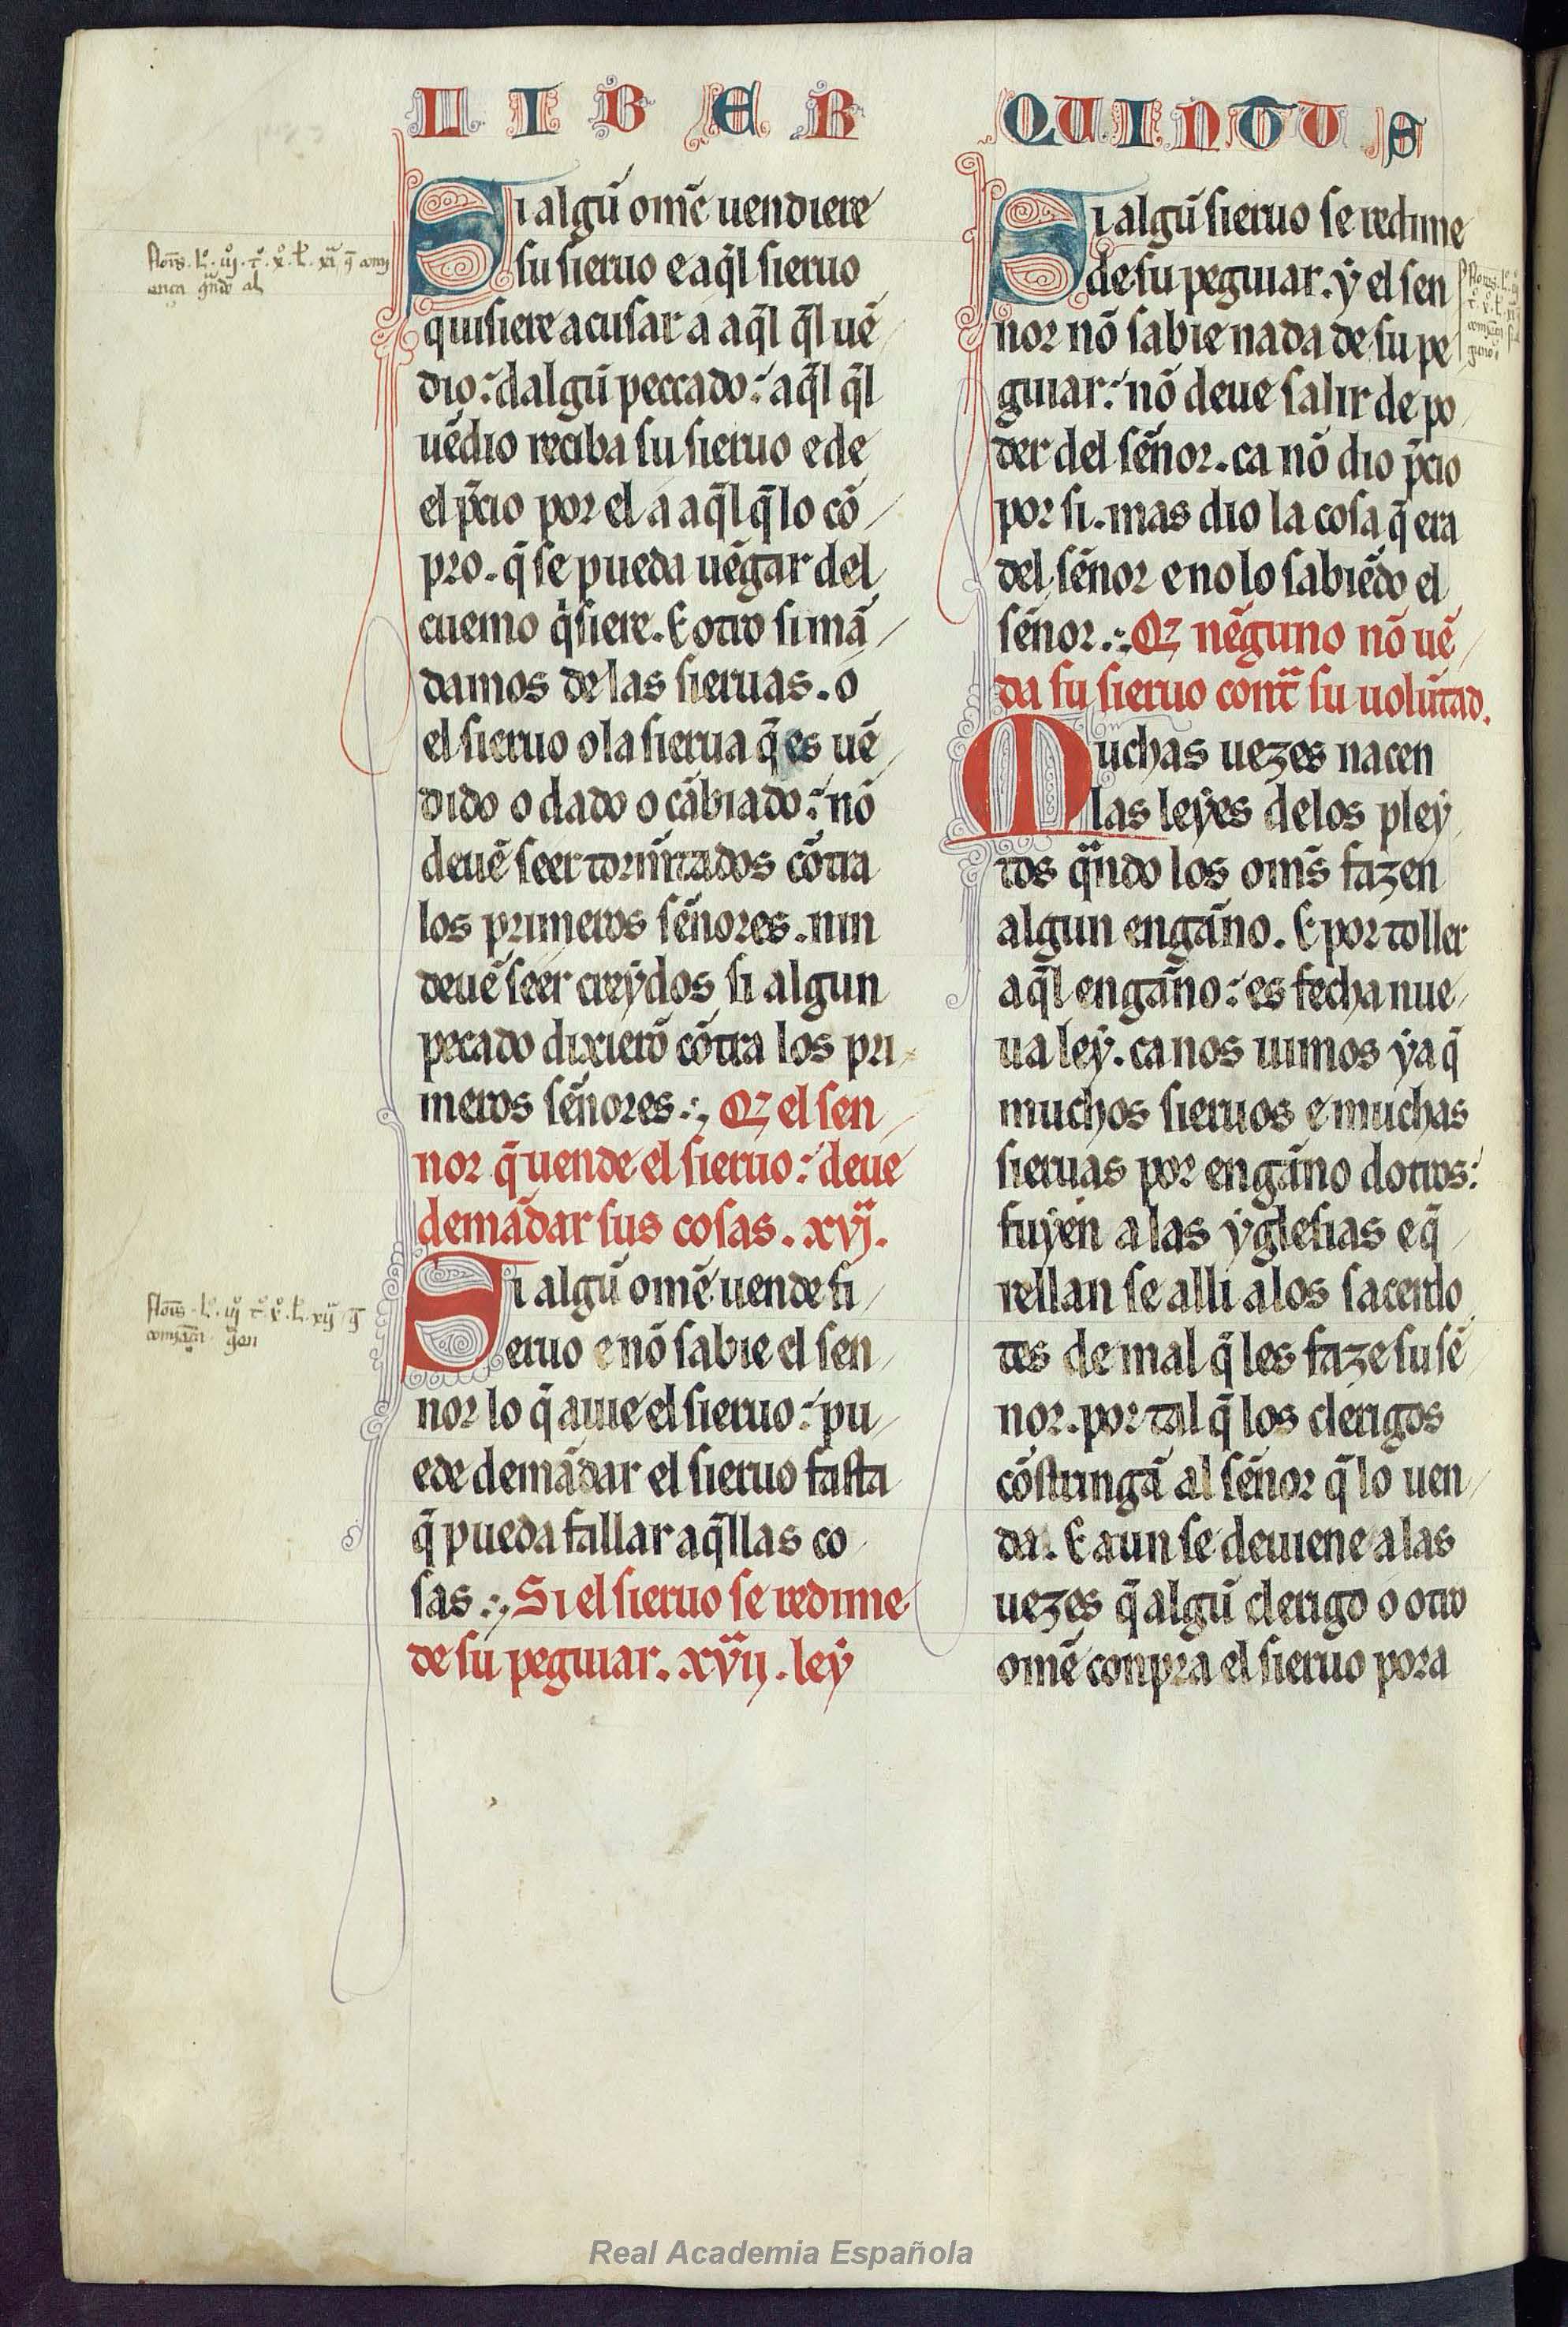 LIBER QUINTUS
Si algũ omẽ uendiere
su sieruo e aq̃l sieruo
quisiere acusar a aq̃l q̃l uẽ
dio: dalgũ peccado: aq̃l q̃l
uẽdio reciba su sieruo e de
el p̃cio por el a aq̃l q̃ lo cõ
pro. q̃ se pueda uẽgar del
cuemo q̃siere. E otro si mã
damos de las sieruas. o
el sieruo o la sierua q̃ es uẽ
dido o dado o cãbiado: nõ
deuẽ seer tormẽtados cõtra
los primeros sẽnores. nin
deuẽ seer creydos si algun
pecado dixierõ cõtra los pri
meros sẽnores. Qz el sen
nor q̃ uende el sieruo: deue
demãdar sus cosas. xvj.
Si algũ omẽ uende si
eruo e nõ sabie el sen
nor lo q̃ auie el sieruo: pu
ede demãdar el sieruo fasta
q̃ pueda fallar aq̃llas co
sas. Si el sieruo se redime
de su peguiar. xvij. ley
Si algũ sieruo se redime
de su peguiar. y el sen
nor nõ sabie nada de su pe
guiar: nõ deue salir de po
der del sẽnor. ca nõ dio p̃cio
por si. mas dio la cosa q̃ era
del sẽnor e no lo sabiẽdo el
sẽnor. Qz nẽguno nõ uẽ
da su sieruo cont̃ su uolũtad.
Muchas uezes nacen
las leyes de los pley
tos q̃ndo los om̃s fazen
algun engãno. E por toller
aq̃l engãno: es fecha nue
ua ley. ca nos uimos ya q̃
muchos sieruos e muchas
sieruas por engãno dotros:
fuyen a las yglesias e q̃
rellan se alli a los sacerdo
tes de mal q̃ les faze su sẽ
nor. por tal q̃ los clerigos
cõstringã al sẽnor q̃ lo uen
da. E aun se deuiene a las
uezes q̃ algũ clerigo o otro
omẽ conpra el sieruo pora
Real Academia Española